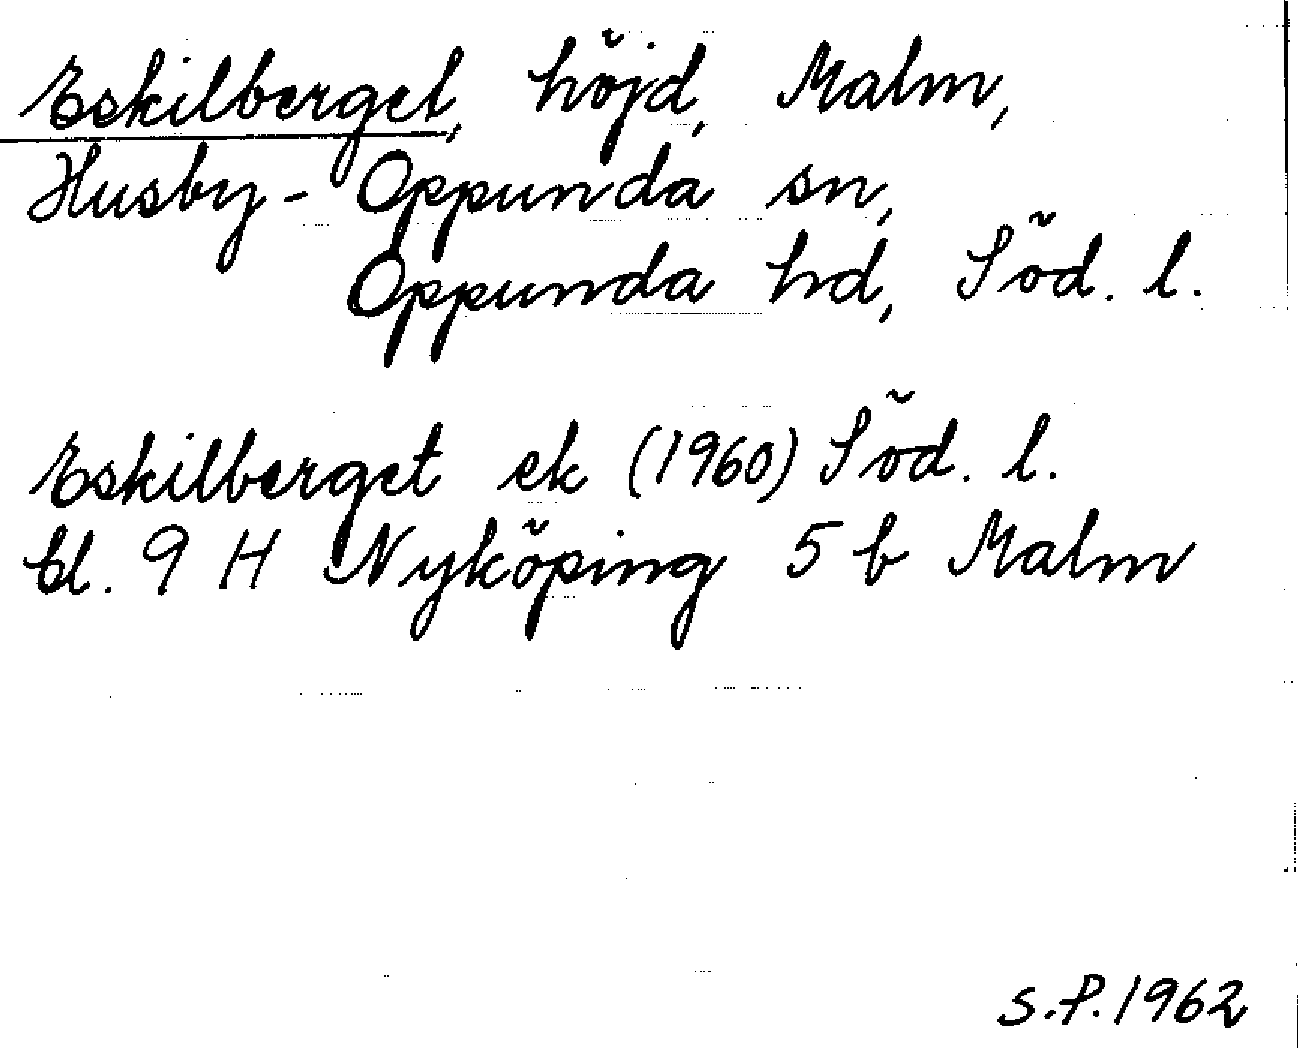 Eskilberget, höjd, Malm,
Husby-Oppunda sn,
Oppunda hd, Söd. l.
Eskilberget ek (1960) Söd. l.
bl. 9 H Nyköping 5 b Malm
S.P. 1962